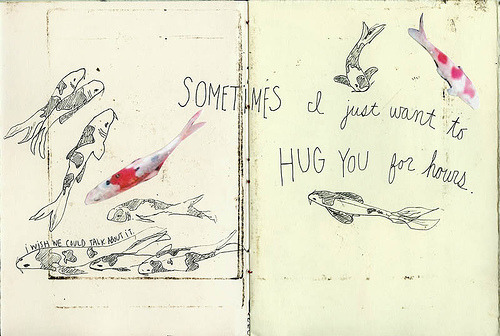 SOMETIMES I just want to
HUG YOU for hours.
I WISH WE COULD TALK ABOUT IT.